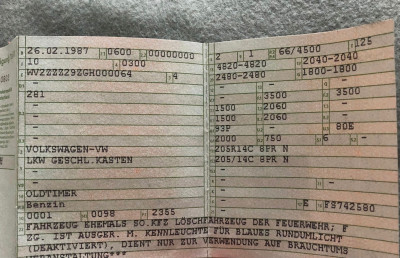 26.02.1987 0600 00000000
10 0300
WV2ZZZ29ZGH000064 4
-
281
-
-
-
VOLKSWAGEN-VW
LKW GESCHL.KASTEN
-
-
OLDTIMER
Benzin
0001 0098 2355
2 1 66/4500 125
4820-4820 2040-2040
2480-2480 1800-1800
- - -
- 3500 3500
1500 2060 -
1500 2060 -
93P - 80E
2000 750 6 -
205R14C 8PR N
205/14C 8PR N
-
-
-
- E FS742580
FAHRZEUG EHEMALS SO.KFZ LÖSCHFAHRZEUG DER FEUERWEHR; F
ZG. IST AUSGER. M. KENNLEUCHTE FÜR BLAUES RUNDUMLICHT
(DEAKTIVIERT), DIENT NUR ZUR VERWENDUNG AUF BRAUCHTUMS
VERANSTALTUNG***